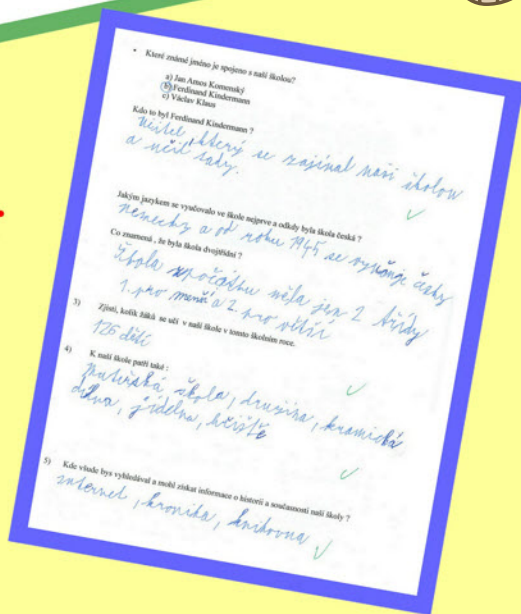 • Které známé jméno je spojeno s naší školou?
a) Jan Amos Komenský
b) Ferdinand Kindermann
c) Václav Klaus
Kdo to byl Ferdinand Kindermann ?
Učitel, který se zajímal naší školou
a učil tady.
Jakým jazykem se vyučovalo ve škole nejprve a odkdy byla škola česká ?
německy a od roku 1945 se vyučuje česky
Co znamená , že byla škola dvojtřídní ?
Škola zpočátku měla jen 2 třídy
1. pro menší a 2. pro větší
3) Zjisti, kolik žáků se učí v naší škole v tomto školním roce.
126 dětí
4) K naší škole patří také :
mateřská škola, družina, keramická
dílna, jídelna, hřiště
5) Kde všude bys vyhledával a mohl získat informace o historii a současnosti naší školy ?
internet, kronika, knihovna